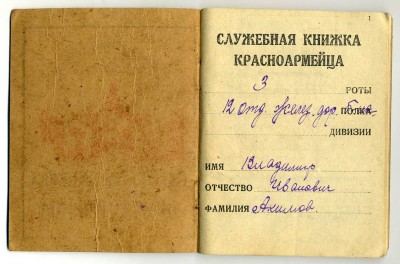 1
СЛУЖЕБНАЯ КНИЖКА
КРАСНОАРМЕЙЦА
3 РОТЫ
12 отд. желез. дор. б-на ПОЛКА
ДИВИЗИИ
ИМЯ Владимир
ОТЧЕСТВО Иванович
ФАМИЛИЯ Акимов